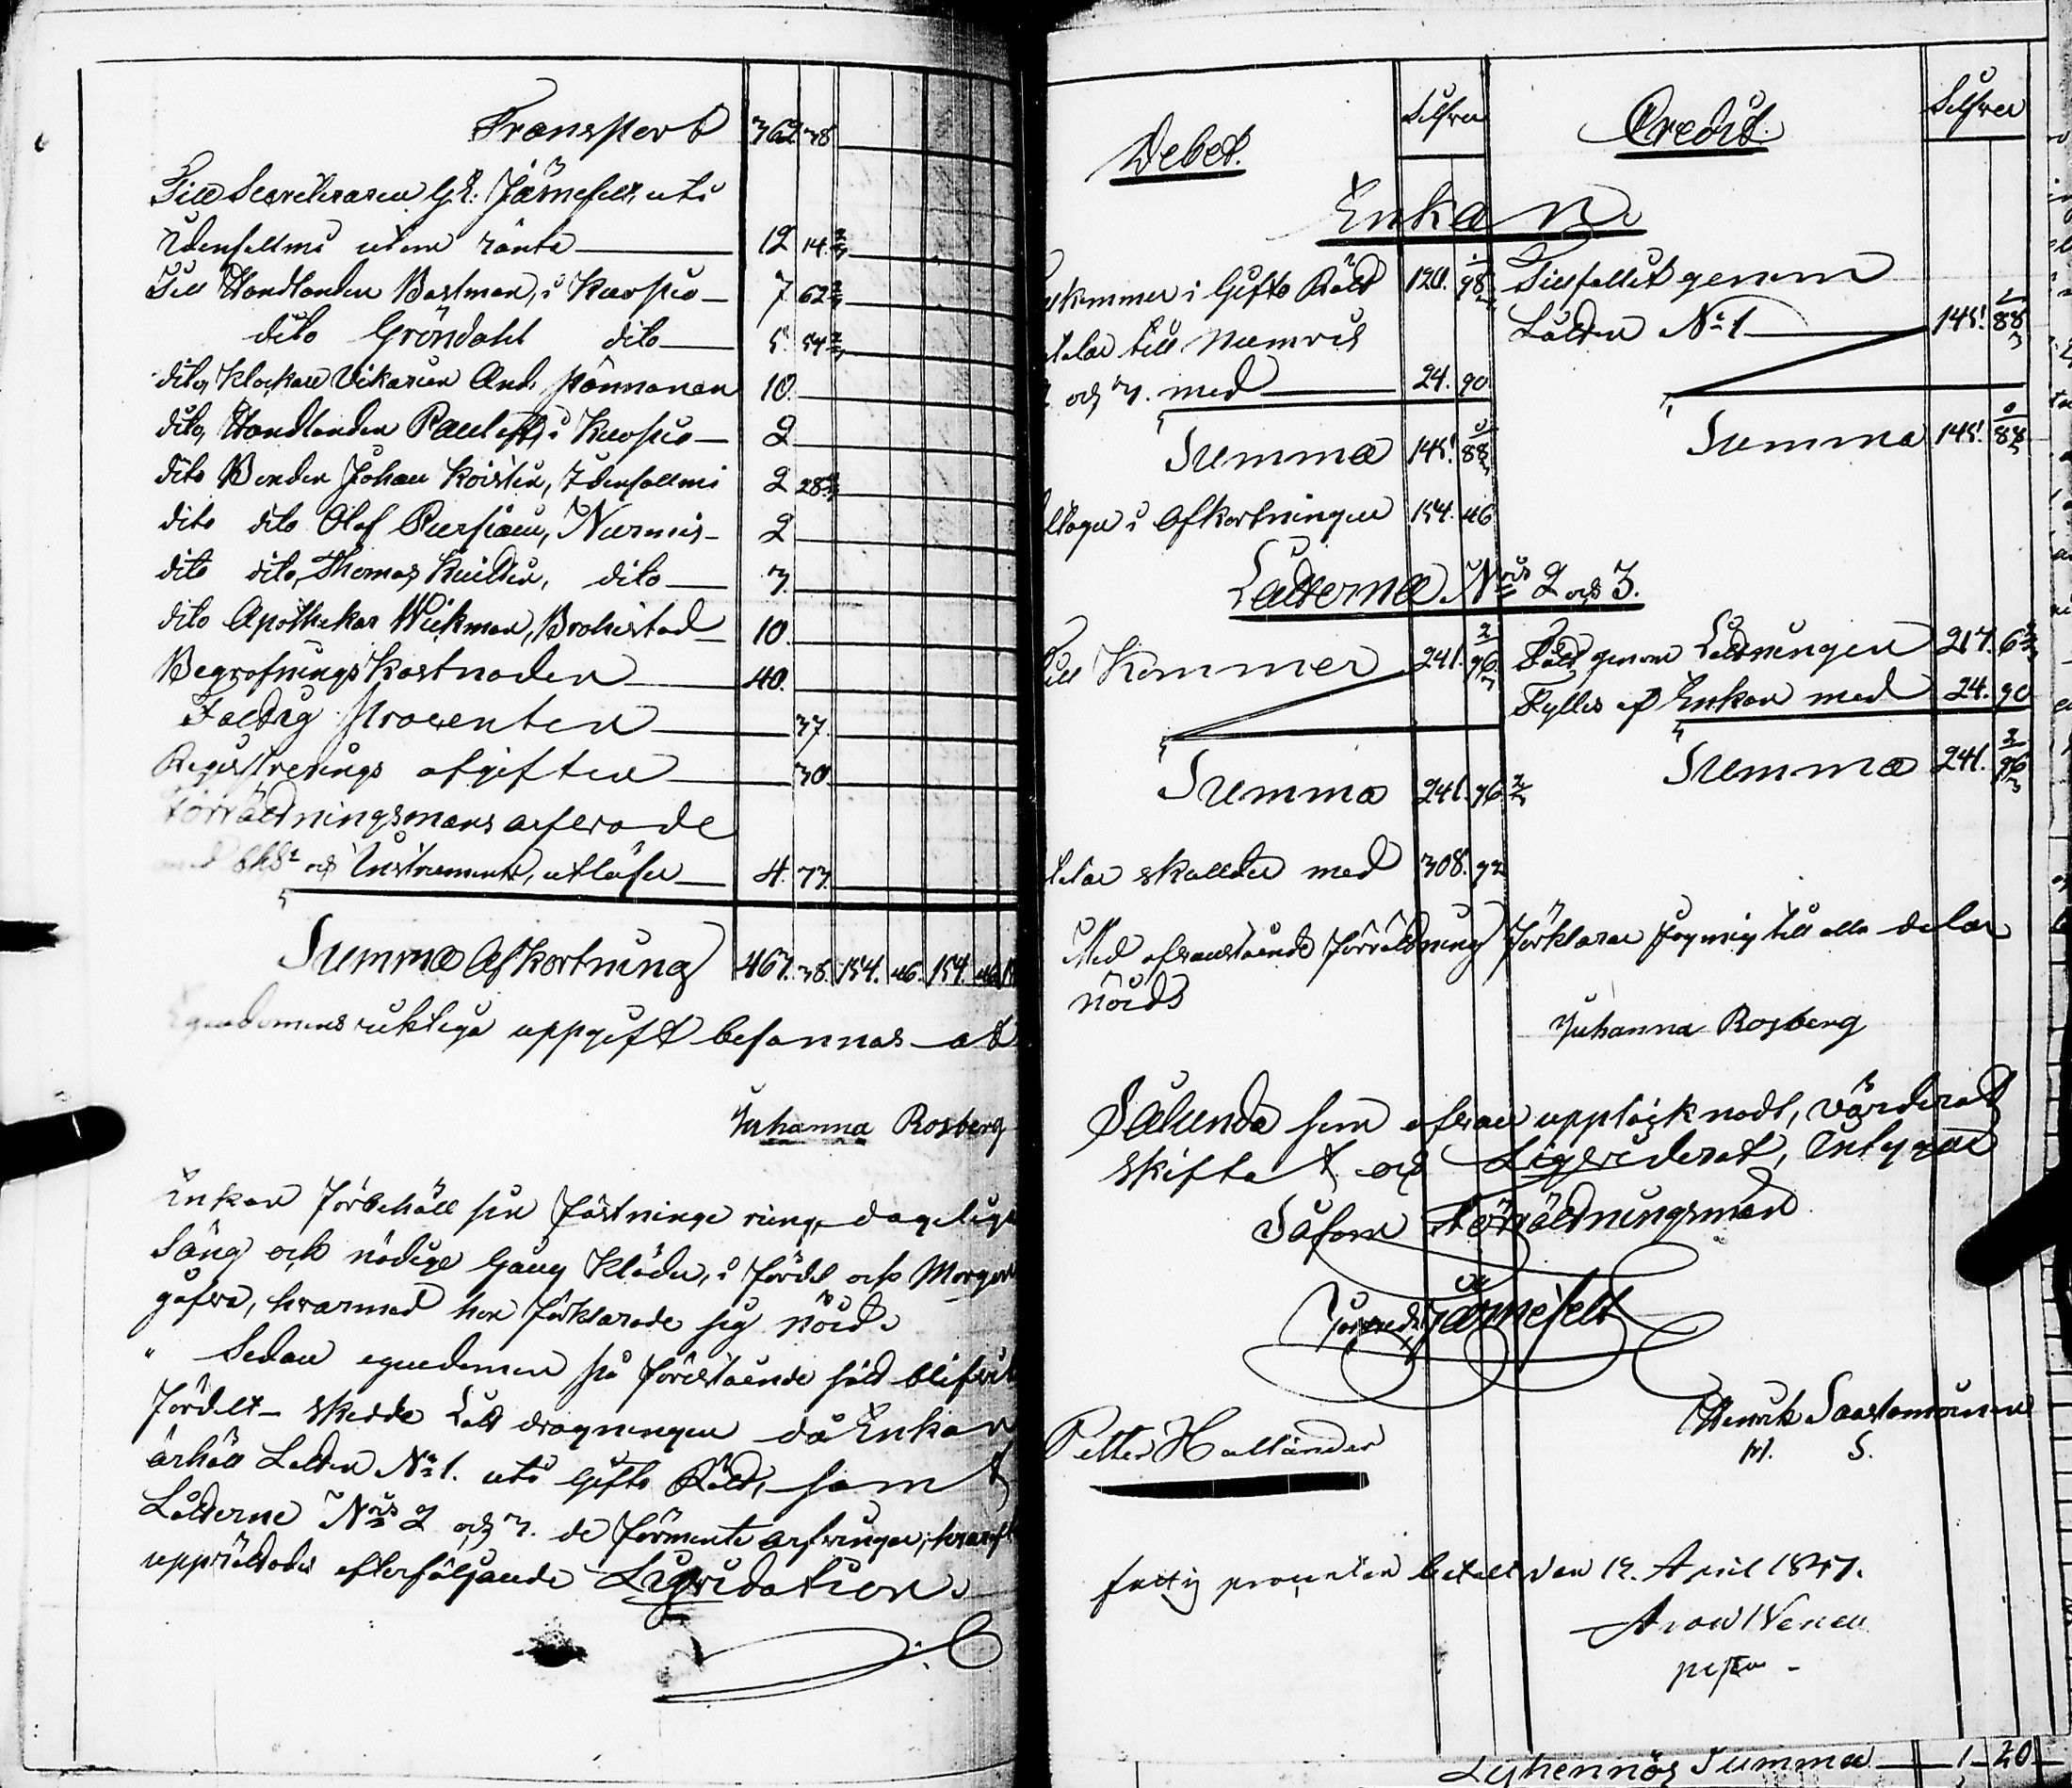 Transport 362 38
Till Secreteraren G. E. Järnefelt, uti
Idensalmi utom ränta 12 14 2/3
Till Handlanden Bastman, i Kuopio 7 62 2/3
dito Gröndahl dito 5 54 2/3
dito, Klockare Vikarien And. Pönnönen 10.
dito, Handlanden Pauloff, i Kuopio 2
dito Bonden Johan Koistin, Idensalmi 2 28
dito dito Olof Pursiain, Nurmis 2
dito dito, Thomas dito 3.
dito Apothekar Wickman, Brahestad 10.
Begrafnings Kostnaden 40.
Fattig Procenten 37.
Registrerings afgiften 30
Förrättningsmans arfvode
och Instrumentets, utlösen 4. 73.
Summa Afkortning 467. 38. 154. 46. 154. 46
Egendomens riktiga uppgift besannas
Juhanna Rosberg
Enkan förbehöll sin fästninge ring, dageliga
Säng och nödige Gång Kläder, i fördel och Morgon
gåfva, hvarmed hon förklarade sig nöjd.
Sedan egendomen på förestående sätt blifvit
fördelt skedde Lott dragningen då Enkan
erhöll Lotten No 1. uti Gifto Rätt, samt
Lotterne Nris 2 och 3. de förmente arfvingar, hvareft
upprättades efterföljande Liqvidation.
Debet. Silfver Credit. Silfver
Enkan.
kommer i Gifto Rätt 120. 98 Tillfallit genom
till Numris Lotten No 1 145. 88
och 3. med 24. 90
Summa 145. 88 Summa 145. 88
i Afkortningen 154. 46
Lotterna Nris 2 och 3.
Till Kommer 241. 96 2/3 Fått genom Lottningen 217. 6 2/3
Fylles af Enkan med 24. 90
Summa 241. 96 2/3 Summa 241. 96 2/3
skulder med 308. 92
Med ofvanstående förrättning förklarar jag mig till alla delar
nöjd
Juhanna Rosberg
Sålunda som ofvan upptecknadt, värderat
skiftat och Liqviderat, intygar
Såsom Förrättningsman
Järnefelt
Petter Hallander
Henrik Saastamoinen
M. S.
fattig procenten betalt den 12. April 1847.
Aron
Lyhennös Summa 1 20